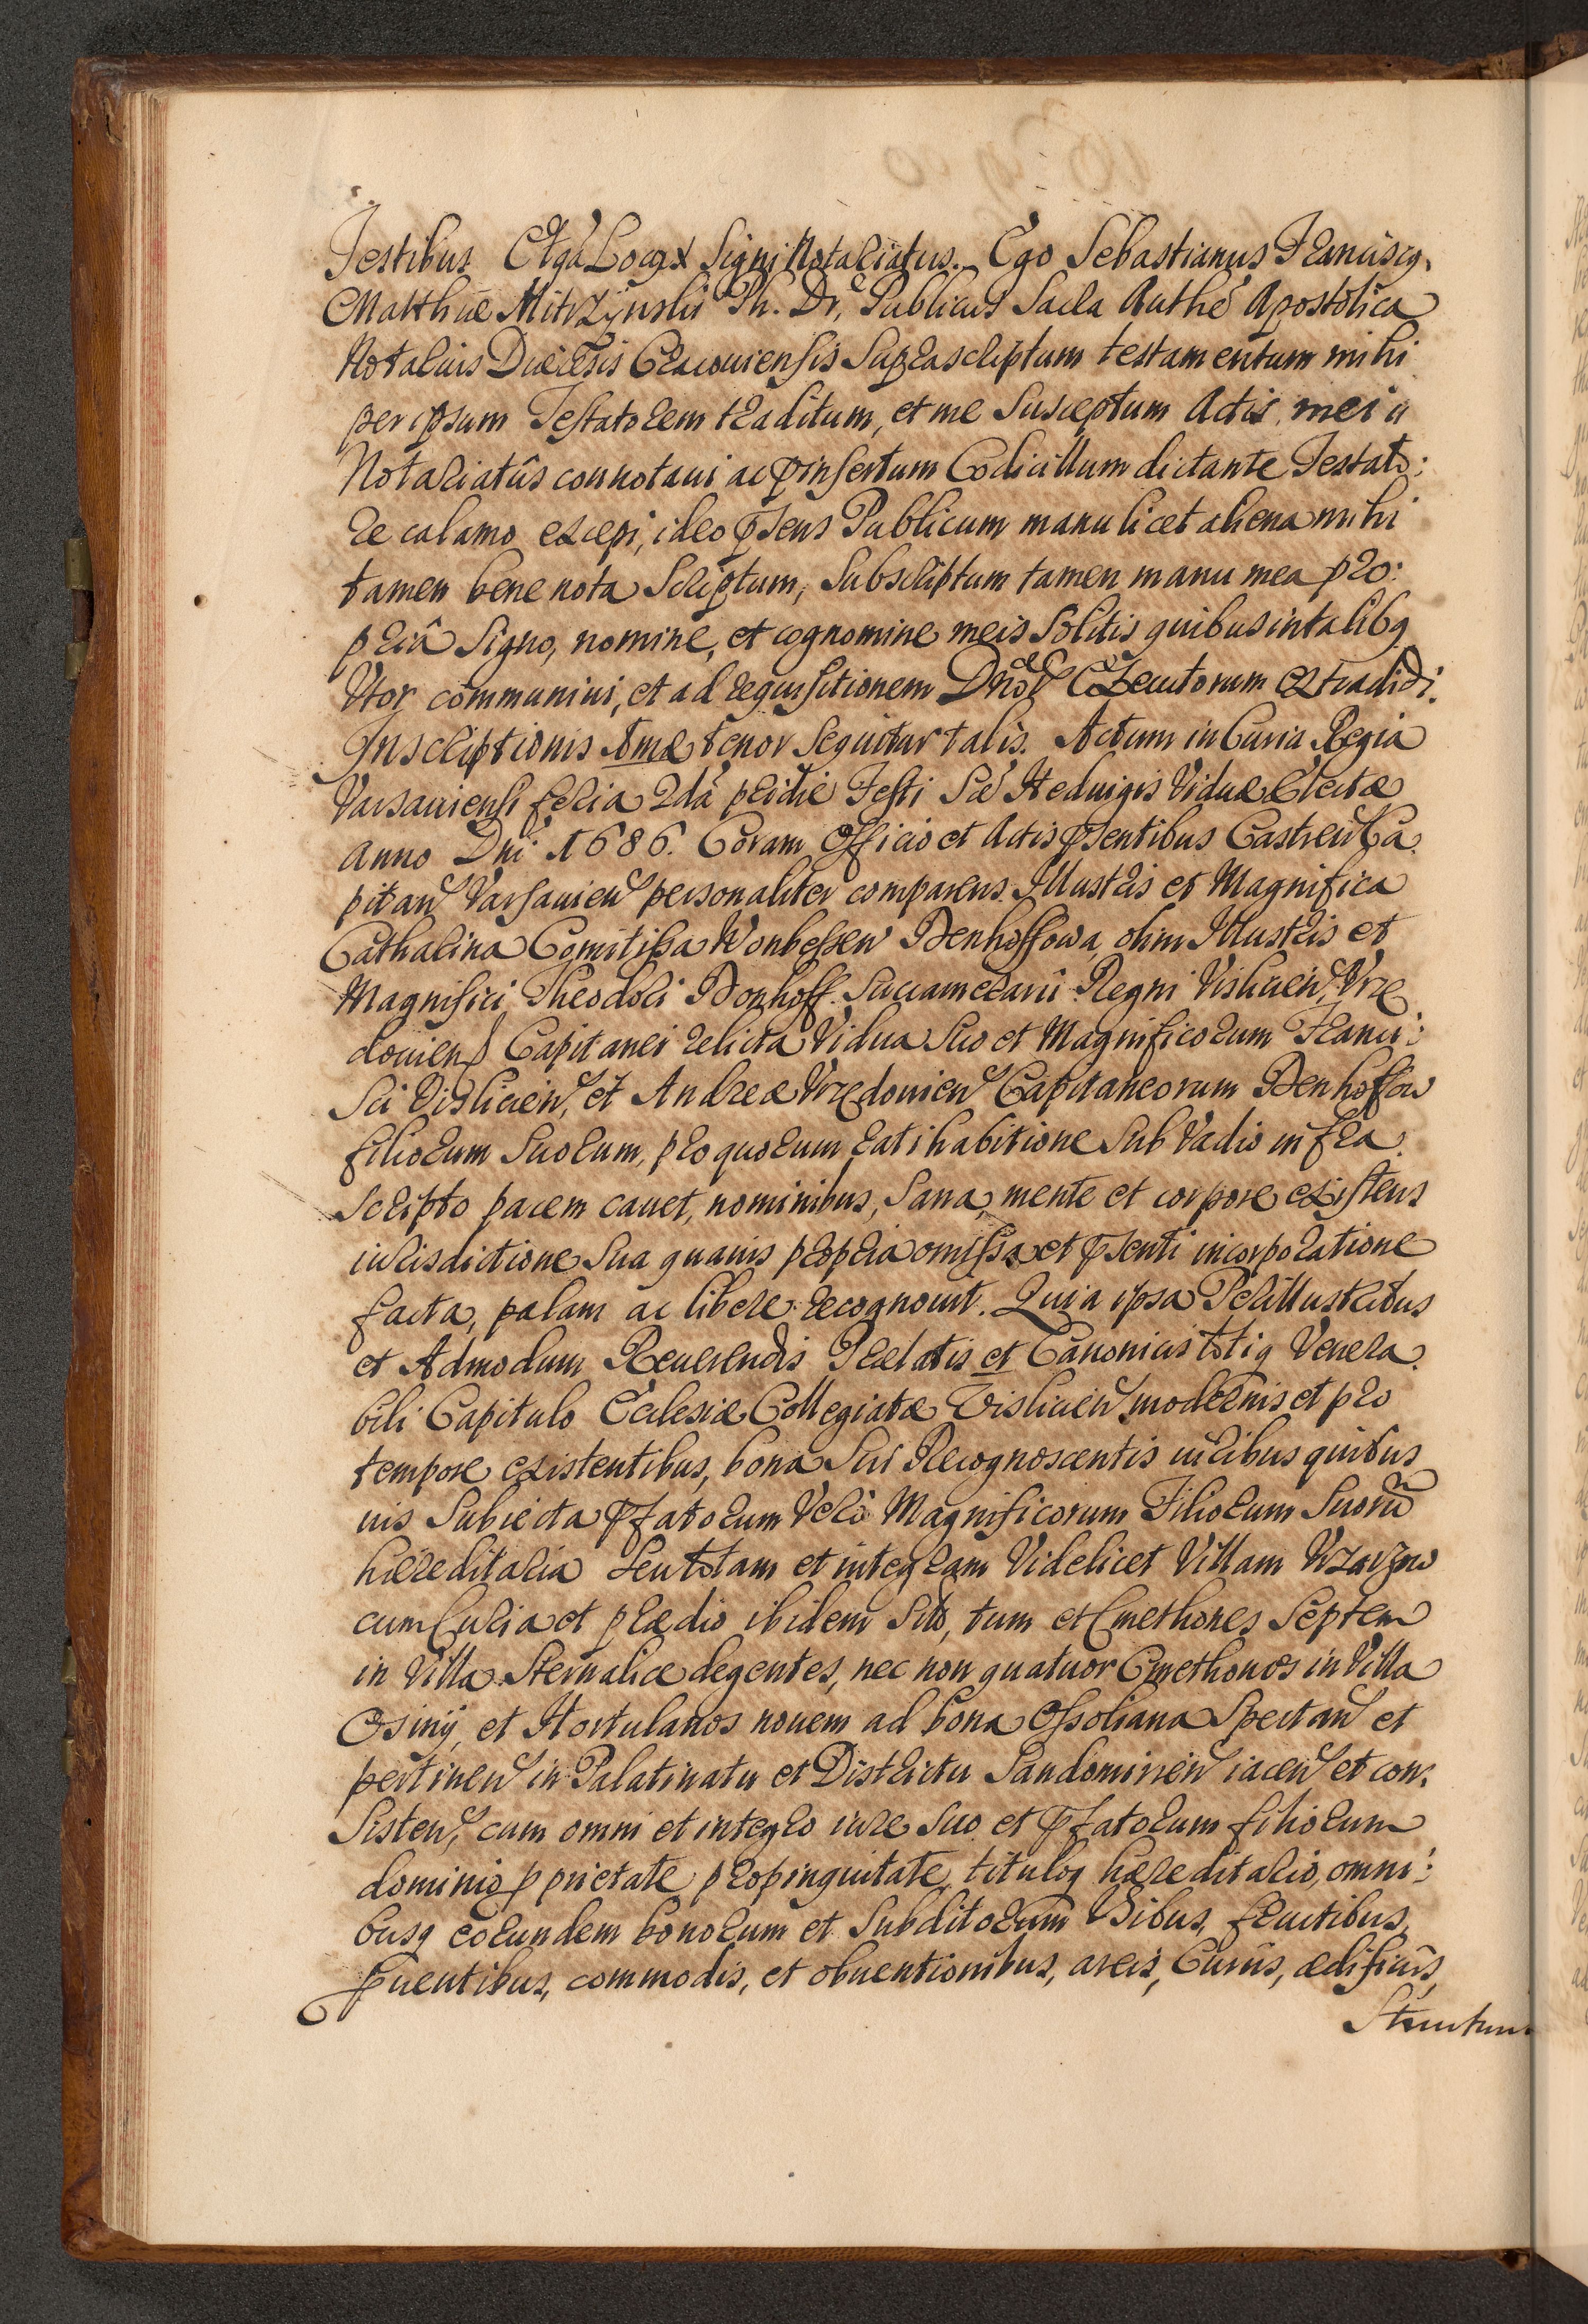 Testibus Ctgd Locus Signi Notariatus. Ego Sebastianus Franciscq
Matthiæ Mitrzynski Ph. Dr, Publicus Sacra Authē Apostolica
Notarius Diæcesis Cracouiensis Suprascriptum testamentum mihi
per ipsum Testatorem traditum, et me Susceptum Actis meis
Notariatûs connotaui ac pinsertum Codicillum dictante Testato:
re calamo excepi, ideo psens Publicum manu licet aliena mihi
tamen bene nota Scriptum, Subscriptum tamen manu mea pro:
priâ Signo, nomine, et cognomine meis Solitis quibus in talibq
Vtor communiui, et ad requisitionem Dnor Executorum extradidi.
Inscriptionis Amæ tenor Sequitur talis. Actum in Curia Regia
Varsauiensi feria 2dā pridie Festi Sæ Heduigis Viduæ Electæ
Anno Dni 1686. Coram Officio et Actis psentibus Castren Ca
pitan Varsauien personaliter comparens Illustris et Magnifica
Catharina Comitissa Wonbessen Denhoffowa, olim Illustris et
Magnifici Theodori Donhoff Succamerarii Regni Vislicien, Vrze
douien Capitanei relicta Vidua Suo et Magnificorum Franci:
Sci Vislicien, et Andreæ Vrzedouien Capitaneorum Denhoffow
filiorum Suorum, pro quorum ratihabitione Sub Vadio infra
Scripto pacem cauet, nominibus, Sana mente et corpore existens
iurisdictione Sua quauis propria omissa et psenti incorporatione
facta, palam ac libere recognouit. Quia ipsa Perillustribus
et Admodum Reuerendis Prælatis et Canonicis totiq Venera
bili Capitulo Ecclesiæ Collegiatæ Vislicien modernis et pro
tempore existentibus, bona Sui Recognoscentis iuribus quibus
uis Subiecta pfatorum Vero Magnificorum Filiorum Suorū
hæreditaria Seu totam et integram Videlicet Villam
cum Curia et prædio ibidem Sito, tum et Cmethones Septem
in Villa Sternalice degentes, nec non quatuor Cmethones in Villa
Osiny, et Hortulanos nouem ad bona Ossoliana Spectan et
pertinen in Palatinatu et Districtu Sandomirien iacen et con:
Sisten, cum omni et integro iure Suo et pfatorum filiorum
dominio pprietate propinquitate, tituloq hæreditario, omni:
busq eorundem bonorum et Subditorum Vsibus, fructibus,
puentibus, commodis, et obuentionibus, areis, Curiis, ædificiis,
Structuri